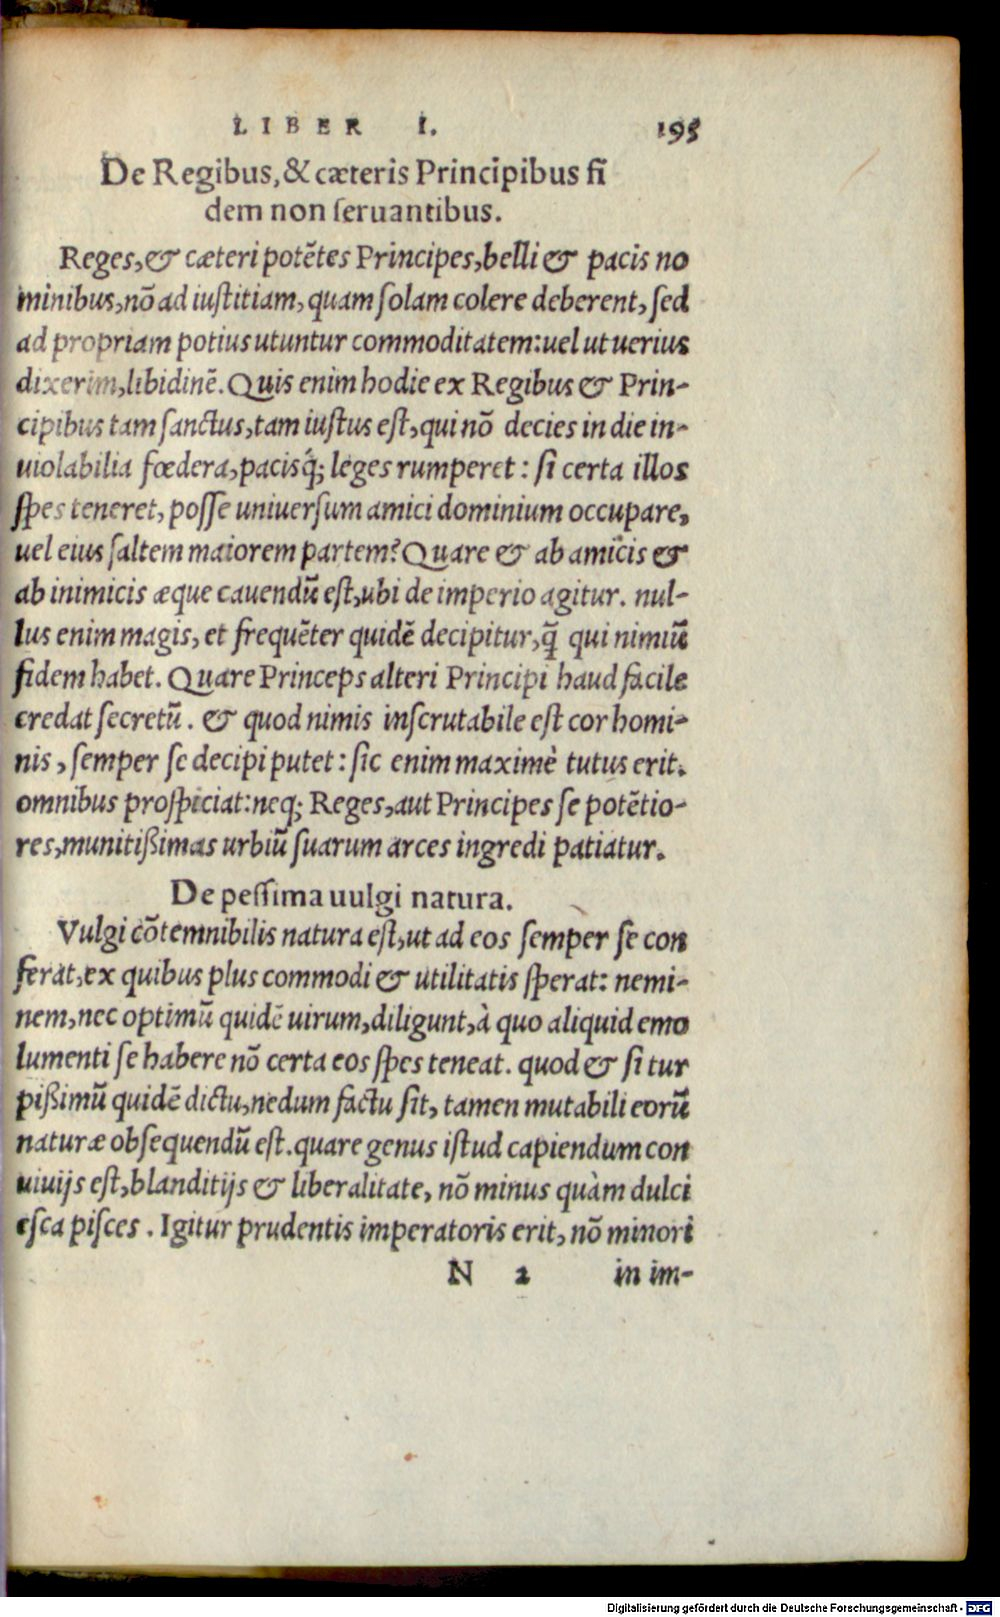 LIBER I. 195
De Regibus, & cæteris Principibus fi
dem non ſeruantibus.
Reges, & cæteri potētes Principes, belli & pacis no
minibus, nō ad iuſtitiam, quam ſolam colere deberent, ſed
ad propriam potius utuntur commoditatem: uel ut uerius
dixerim, libidinē. Quis enim hodie ex Regibus & Prin-
cipibus tam ſanctus, tam iuſtus eſt, qui nō decies in die in-
uiolabilia fœdera, pacisq́; leges rumperet: ſi certa illos
ſpes teneret, poſſe uniuerſum amici dominium occupare,
uel eius ſaltem maiorem partem? Quare & ab amicis &
ab inimicis æque cauendū eſt, ubi de imperio agitur. nul-
lus enim magis, et frequēter quidē decipitur, q̄ qui nimiū
fidem habet. Quare Princeps alteri Principi haud facile
credat ſecretū. & quod nimis inſcrutabile eſt cor homi-
nis, ſemper ſe decipi putet: ſic enim maximè tutus erit.
omnibus proſpiciat: neq; Reges, aut Principes ſe potētio-
res, munitißimas urbiū ſuarum arces ingredi patiatur.
De peſſima uulgi natura.
Vulgi cōtemnibilis natura eſt, ut ad eos ſemper ſe con
ferat, ex quibus plus commodi & utilitatis ſperat: nemi-
nem, nec optimū quidē uirum, diligunt, à quo aliquid emo
lumenti ſe habere nō certa eos ſpes teneat. quod & ſi tur
pißimū quidē dictu, nedum factu ſit, tamen mutabili eorū
naturæ obſequendū eſt. quare genus iſtud capiendum con
uiuijs eſt, blanditijs & liberalitate, nō minus quàm dulci
eſca piſces. Igitur prudentis imperatoris erit, nō minori
N 2 in im-
Digitalisierung gefördert durch die Deutsche Forschungsgemeinschaft - DFG